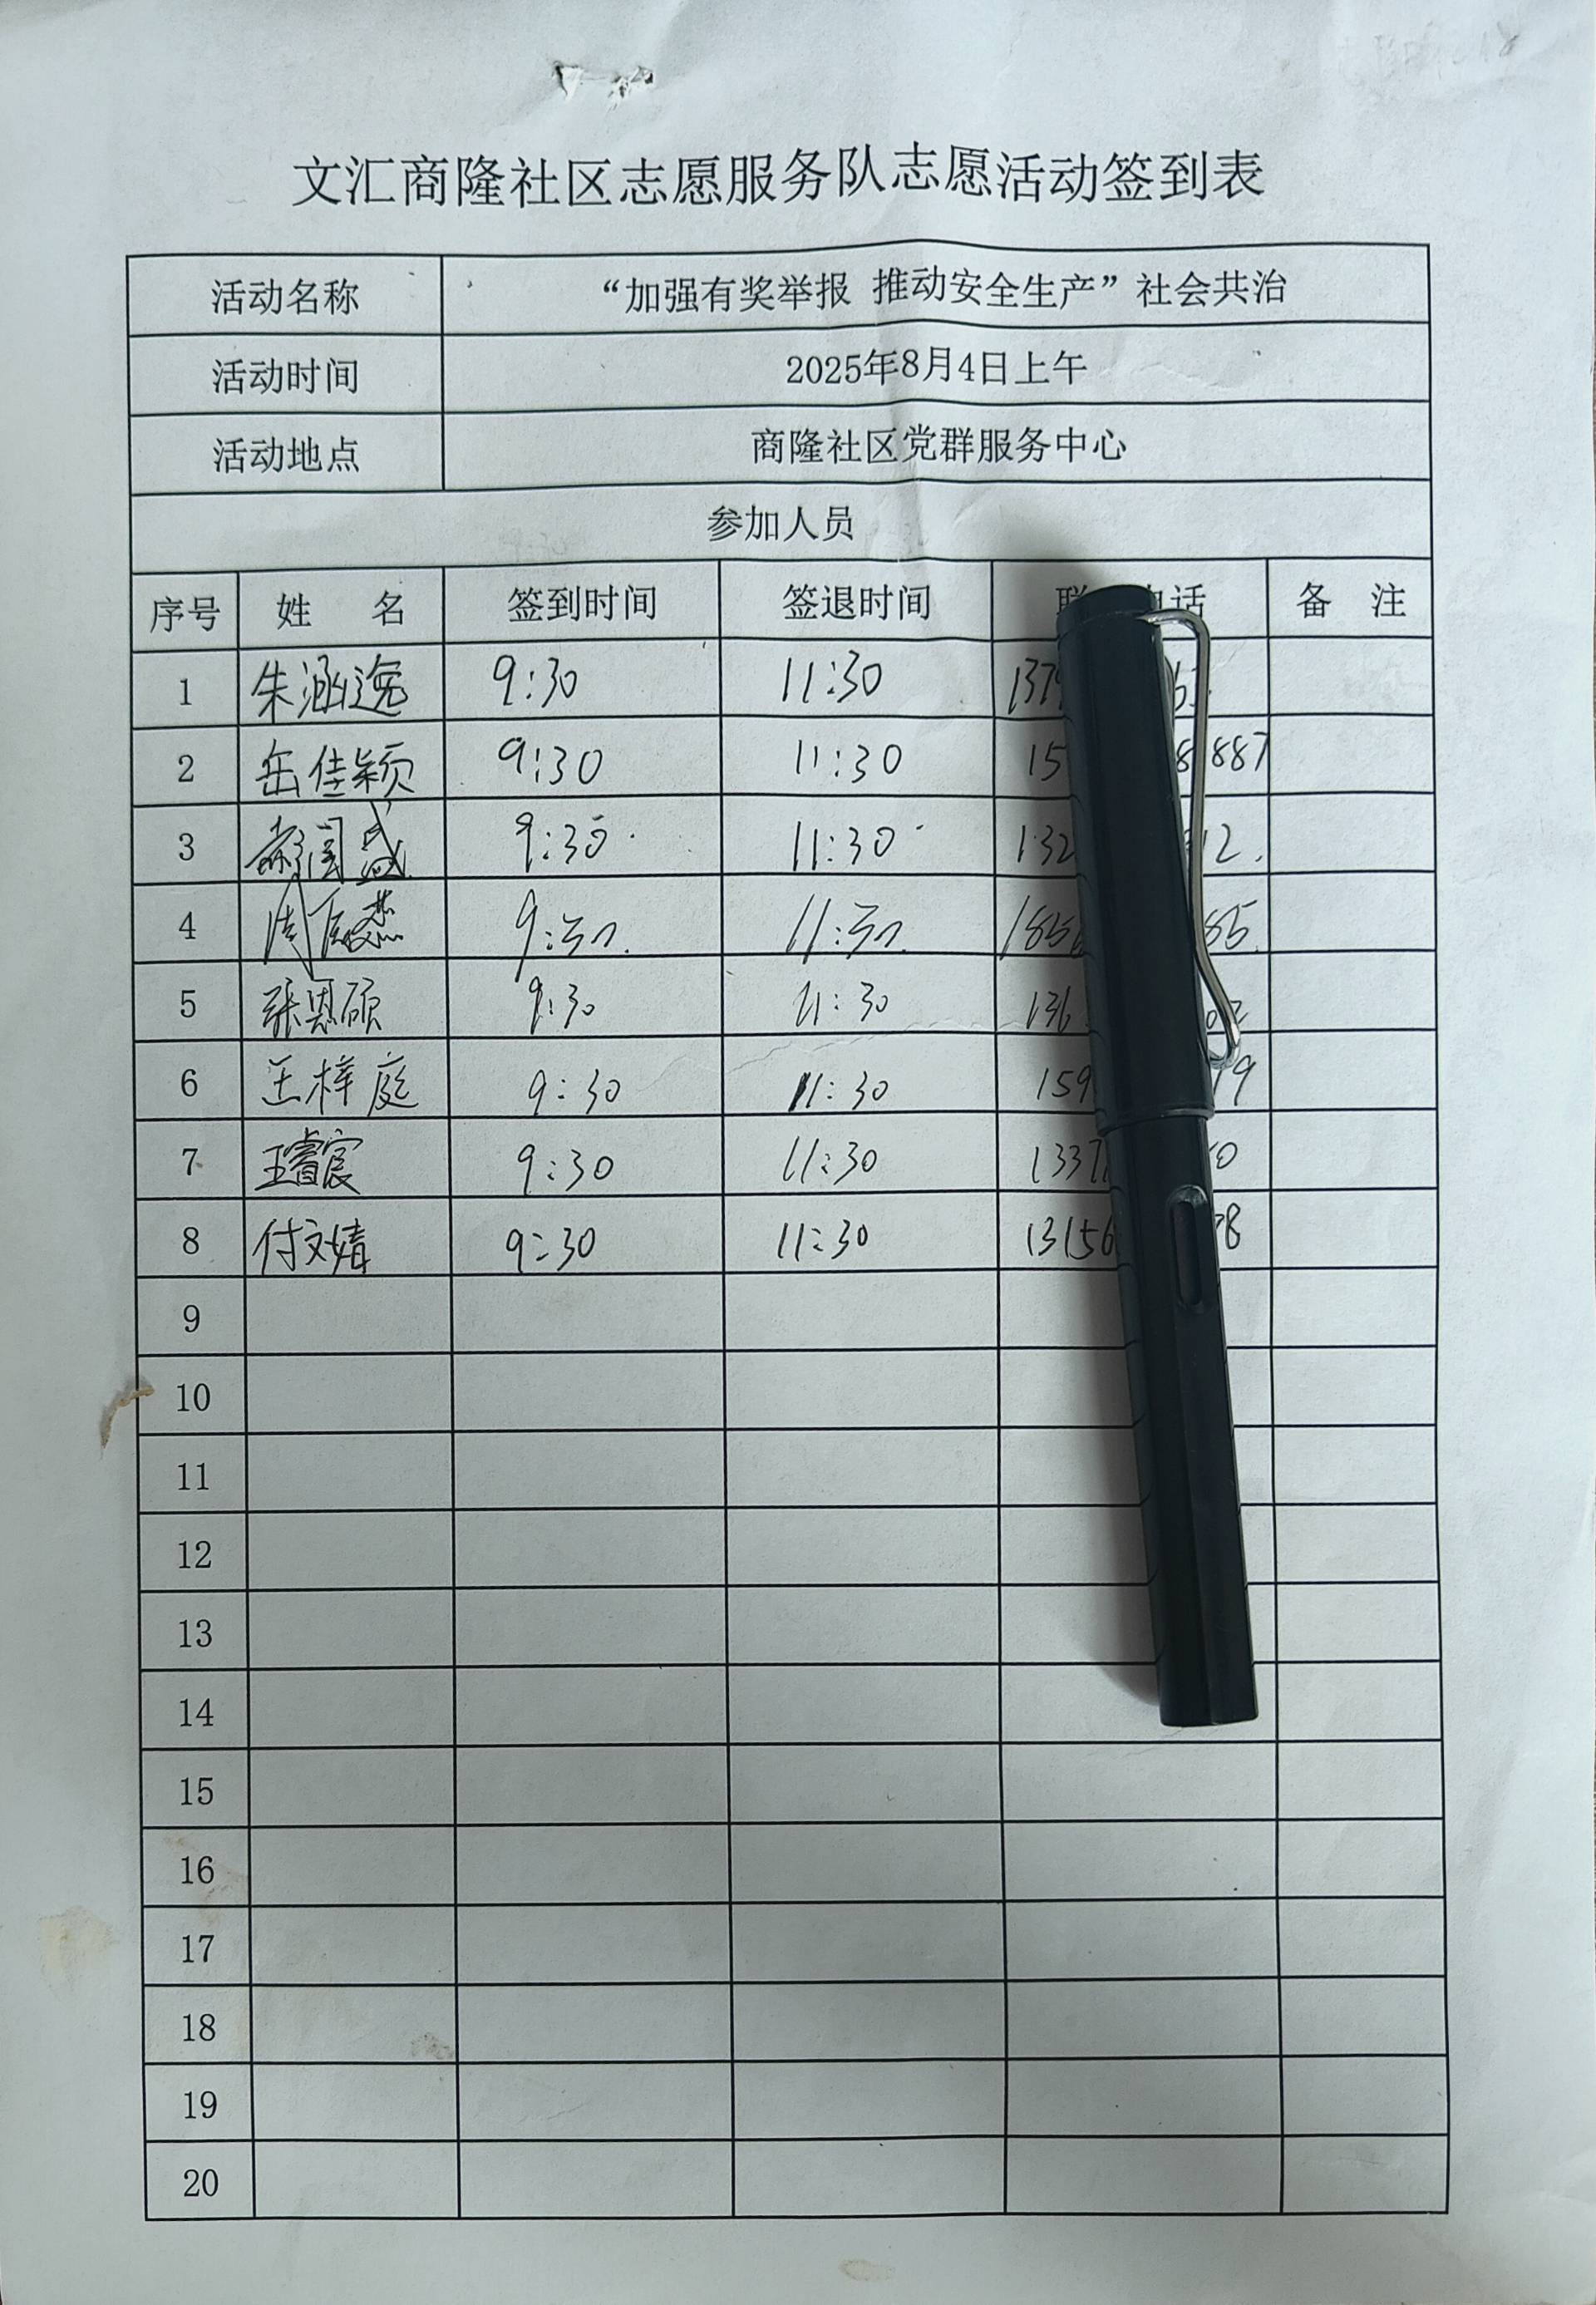 文汇商隆社区志愿服务队志愿活动签到表
活动名称 “加强有奖举报 推动安全生产”社会共治
活动时间 2025年8月4日上午
活动地点 商隆社区党群服务中心
参加人员
序号 姓 名 签到时间 签退时间 话 备 注
1 朱涵逸 9:30 11:30 137
2 岳佳颖 9:30 11:30 15 8887
3 9:30 11:30 132 12.
4 9:30 11:30 185 85
5 张恩硕 9:30 11:30 136
6 王梓庭 9:30 11:30 159 19
7 王睿宸 9:30 11:30 1337 0
8 付文婧 9:30 11:30 13156 8
9
10
11
12
13
14
15
16
17
18
19
20